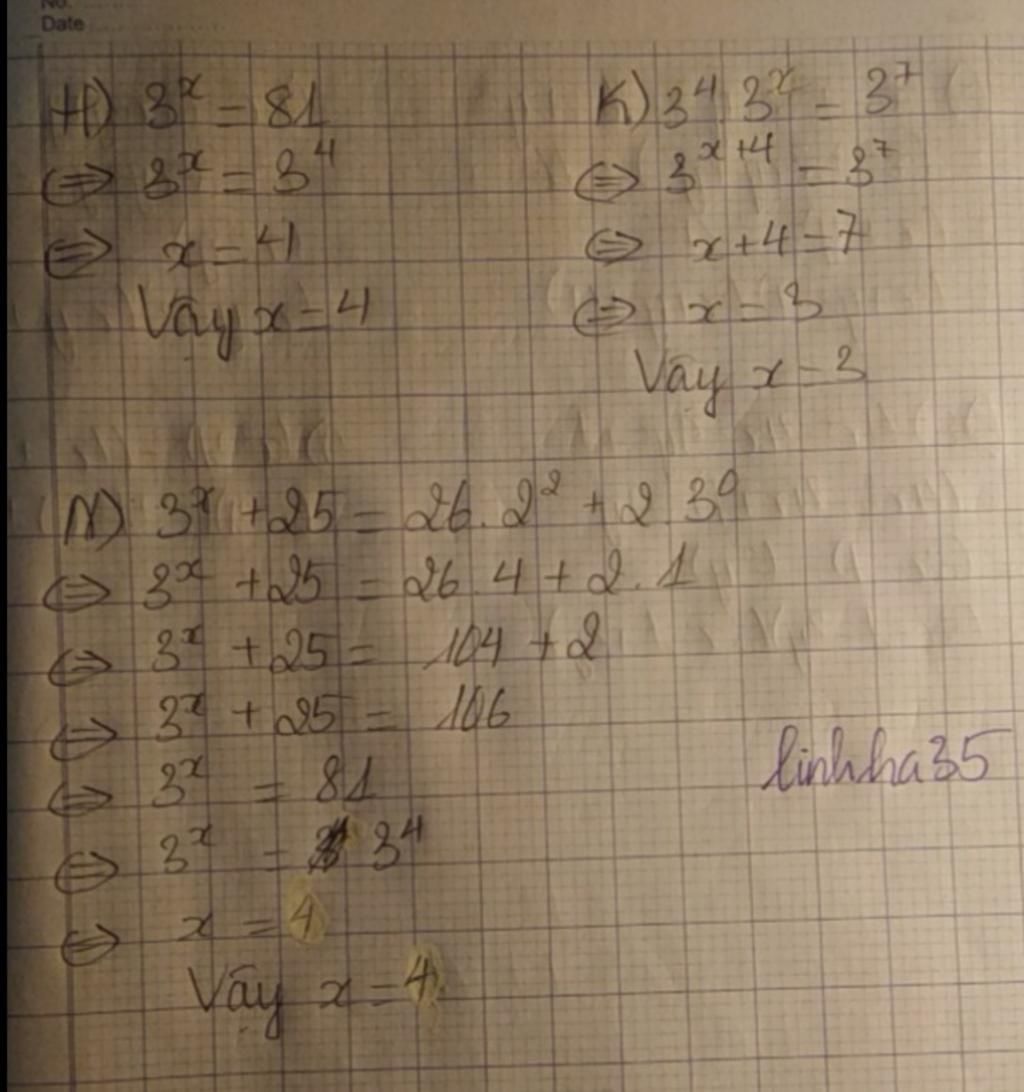 No.
Date
H) 3ˣ = 81
⇔ 3ˣ = 3⁴
⇔ x = 4
Vậy x = 4
K) 3⁴ 3ˣ = 3⁷
⇔ 3ˣ⁺⁴ = 3⁷
⇔ x + 4 = 7
⇔ x = 3
Vậy x = 3
N) 3ˣ + 25 = 26. 2² + 2 3⁰
⇔ 3ˣ + 25 = 26 4 + 2. 1
⇔ 3ˣ + 25 = 104 + 2
⇔ 3ˣ + 25 = 106
⇔ 3ˣ = 81
⇔ 3ˣ = 3⁴
⇔ x = 4
Vậy x = 4
linhha35